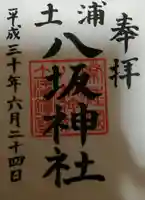 奉拝
土浦
八坂神社
平成三十年六月二十四日